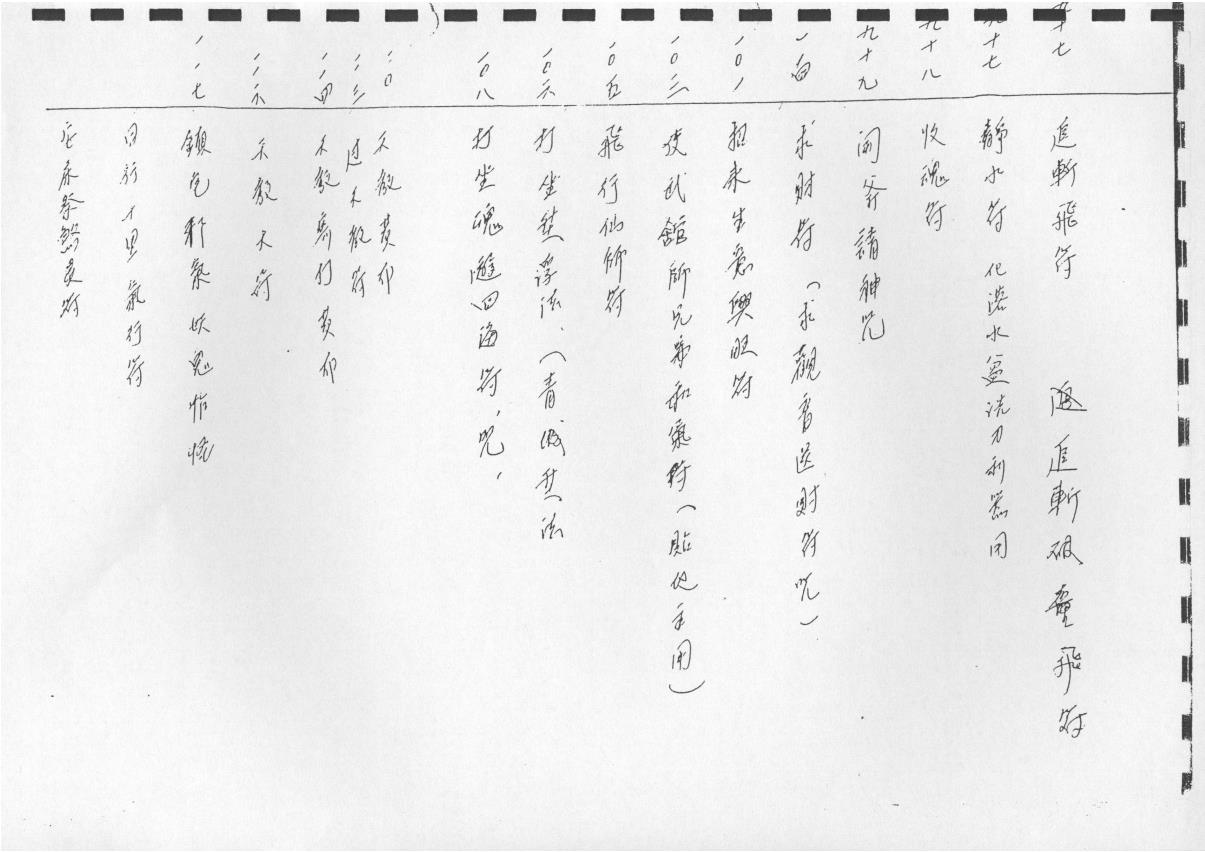 九十七 追斬飛符 追斬破童飛符
九十七 靜水符 化落水盆洗刀利器用
九十八 收魂符
九十九 開斧請神咒
一百 求財符（求觀音送財符咒）
一〇一 招來生意興旺符
一〇三 使武舘師兄弟和氣符（貼地主用）
一〇五 飛行仙師符
一〇六 打坐 浮法、（青 升法
一〇八 打坐魂遊四海符，咒，
一一〇 不赦黃巾
一一三 不赦符
一一四 不赦 黃巾
一一六 不赦大符
一一七 鎮宅邪氣妖鬼作怪
日行千里氣行符
床 煞 符